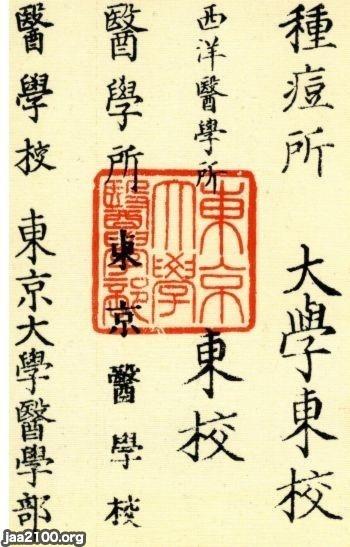 種痘所 大學東校
西洋醫學所 東校
醫學所 東京醫學校
醫學校 東京大學醫學部
東京
大學
醫學部
jaa2100.org